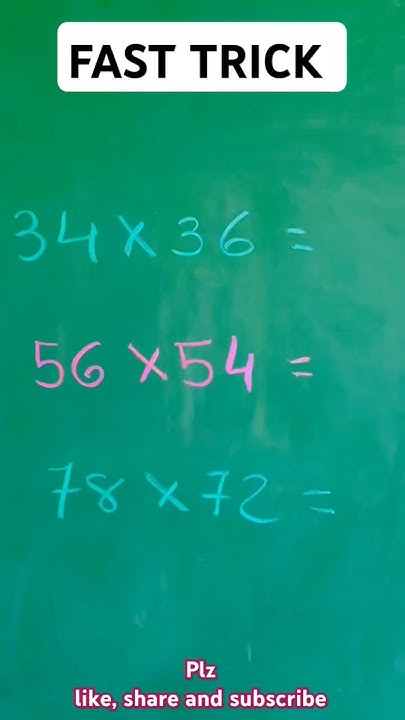 FAST TRICK
34 × 36 =
56 × 54 =
78 × 72 =
Plz
like, share and subscribe